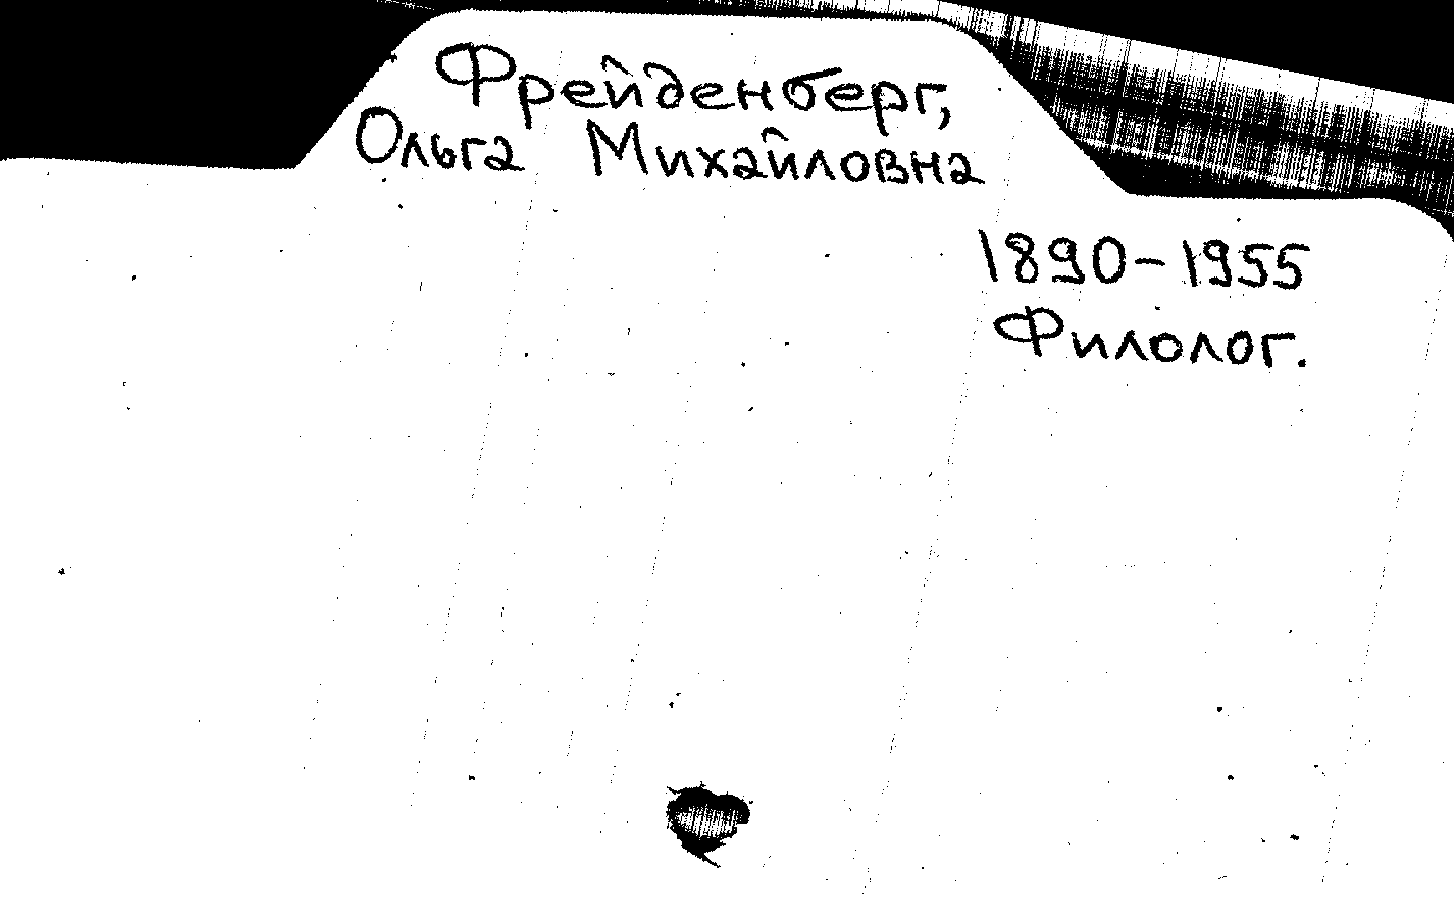 Фрейденберг,
Ольга Михайловна
1890-1955
Филолог.